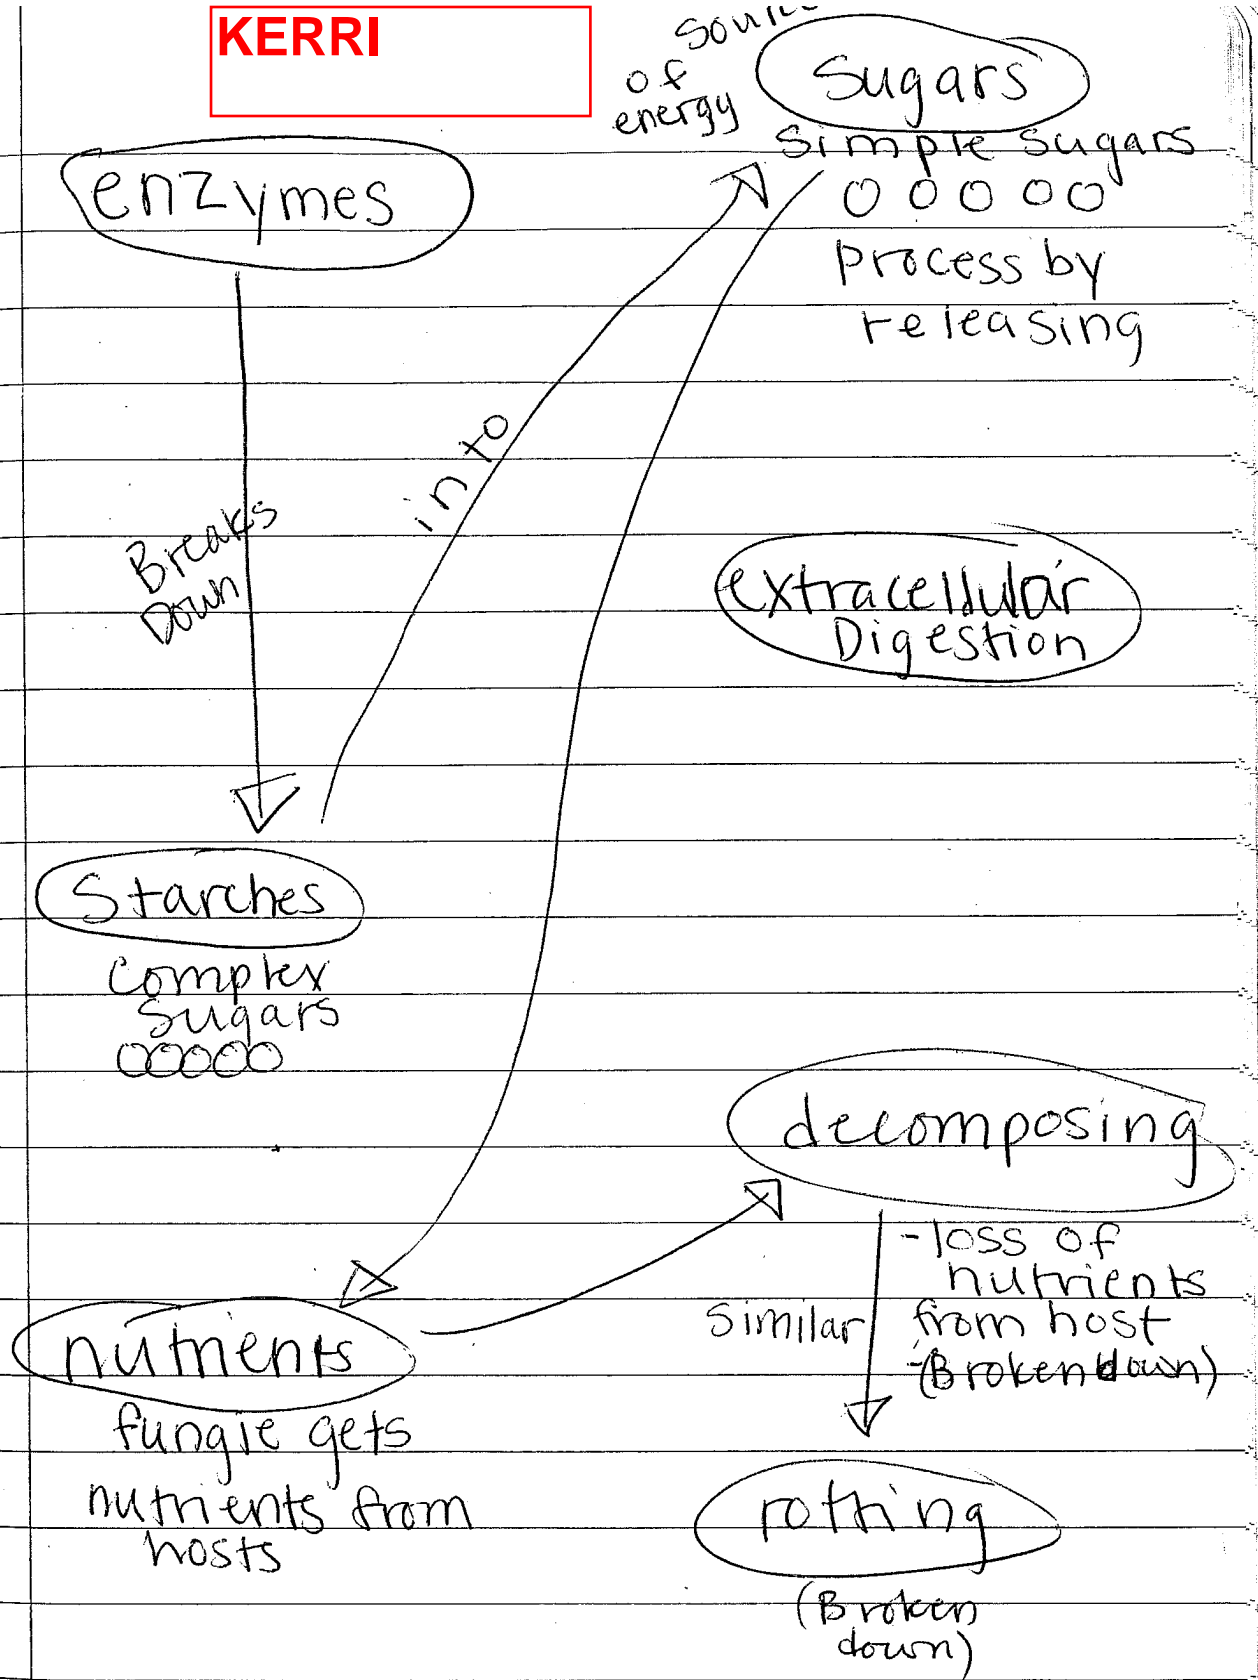 KERRI
of
energy
Sugars
Simple Sugars
Process by
releasing
enzymes
Breaks
Down
into
extracellular
Digestion
Starches
Complex
Sugars
decomposing
-loss of
nutrients
from host
-(Broken down)
Similar
nutrients
fungie gets
nutrients from
hosts
rotting
(Broken
down)